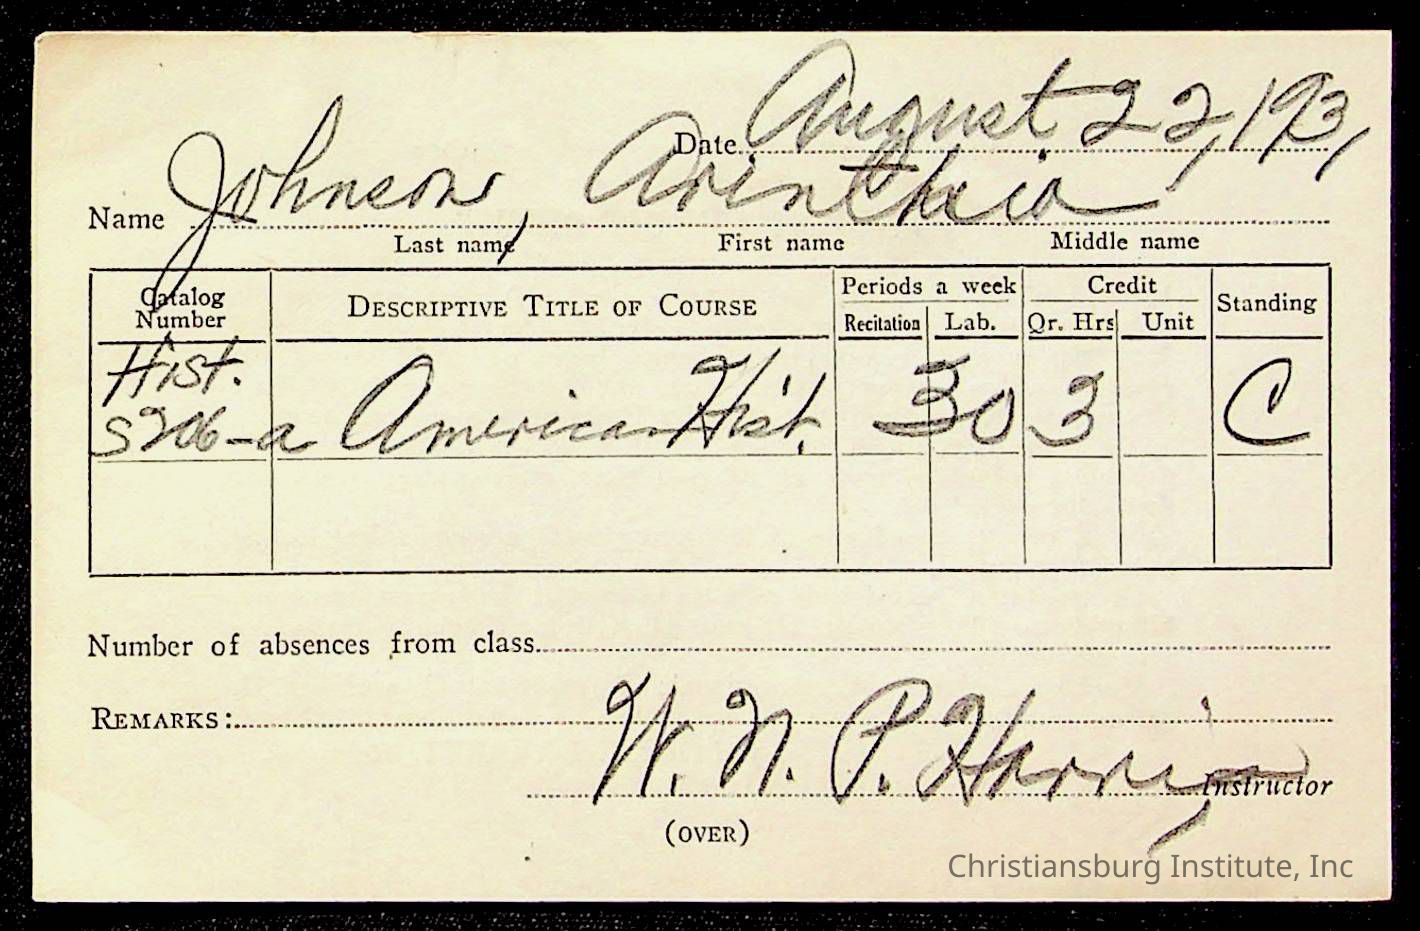 Date August 22, 193,
Name Johnson, Arinthia
Last name First name Middle name
Catalog Number DESCRIPTIVE TITLE OF COURSE Periods a week Recitation Lab. Credit Qr. Hrs Unit Standing
Hist.
S206-a American Hist. 30 3 C
Number of absences from class
REMARKS:
W. N. P. Harris,
Instructor
(OVER)
Christiansburg Institute, Inc